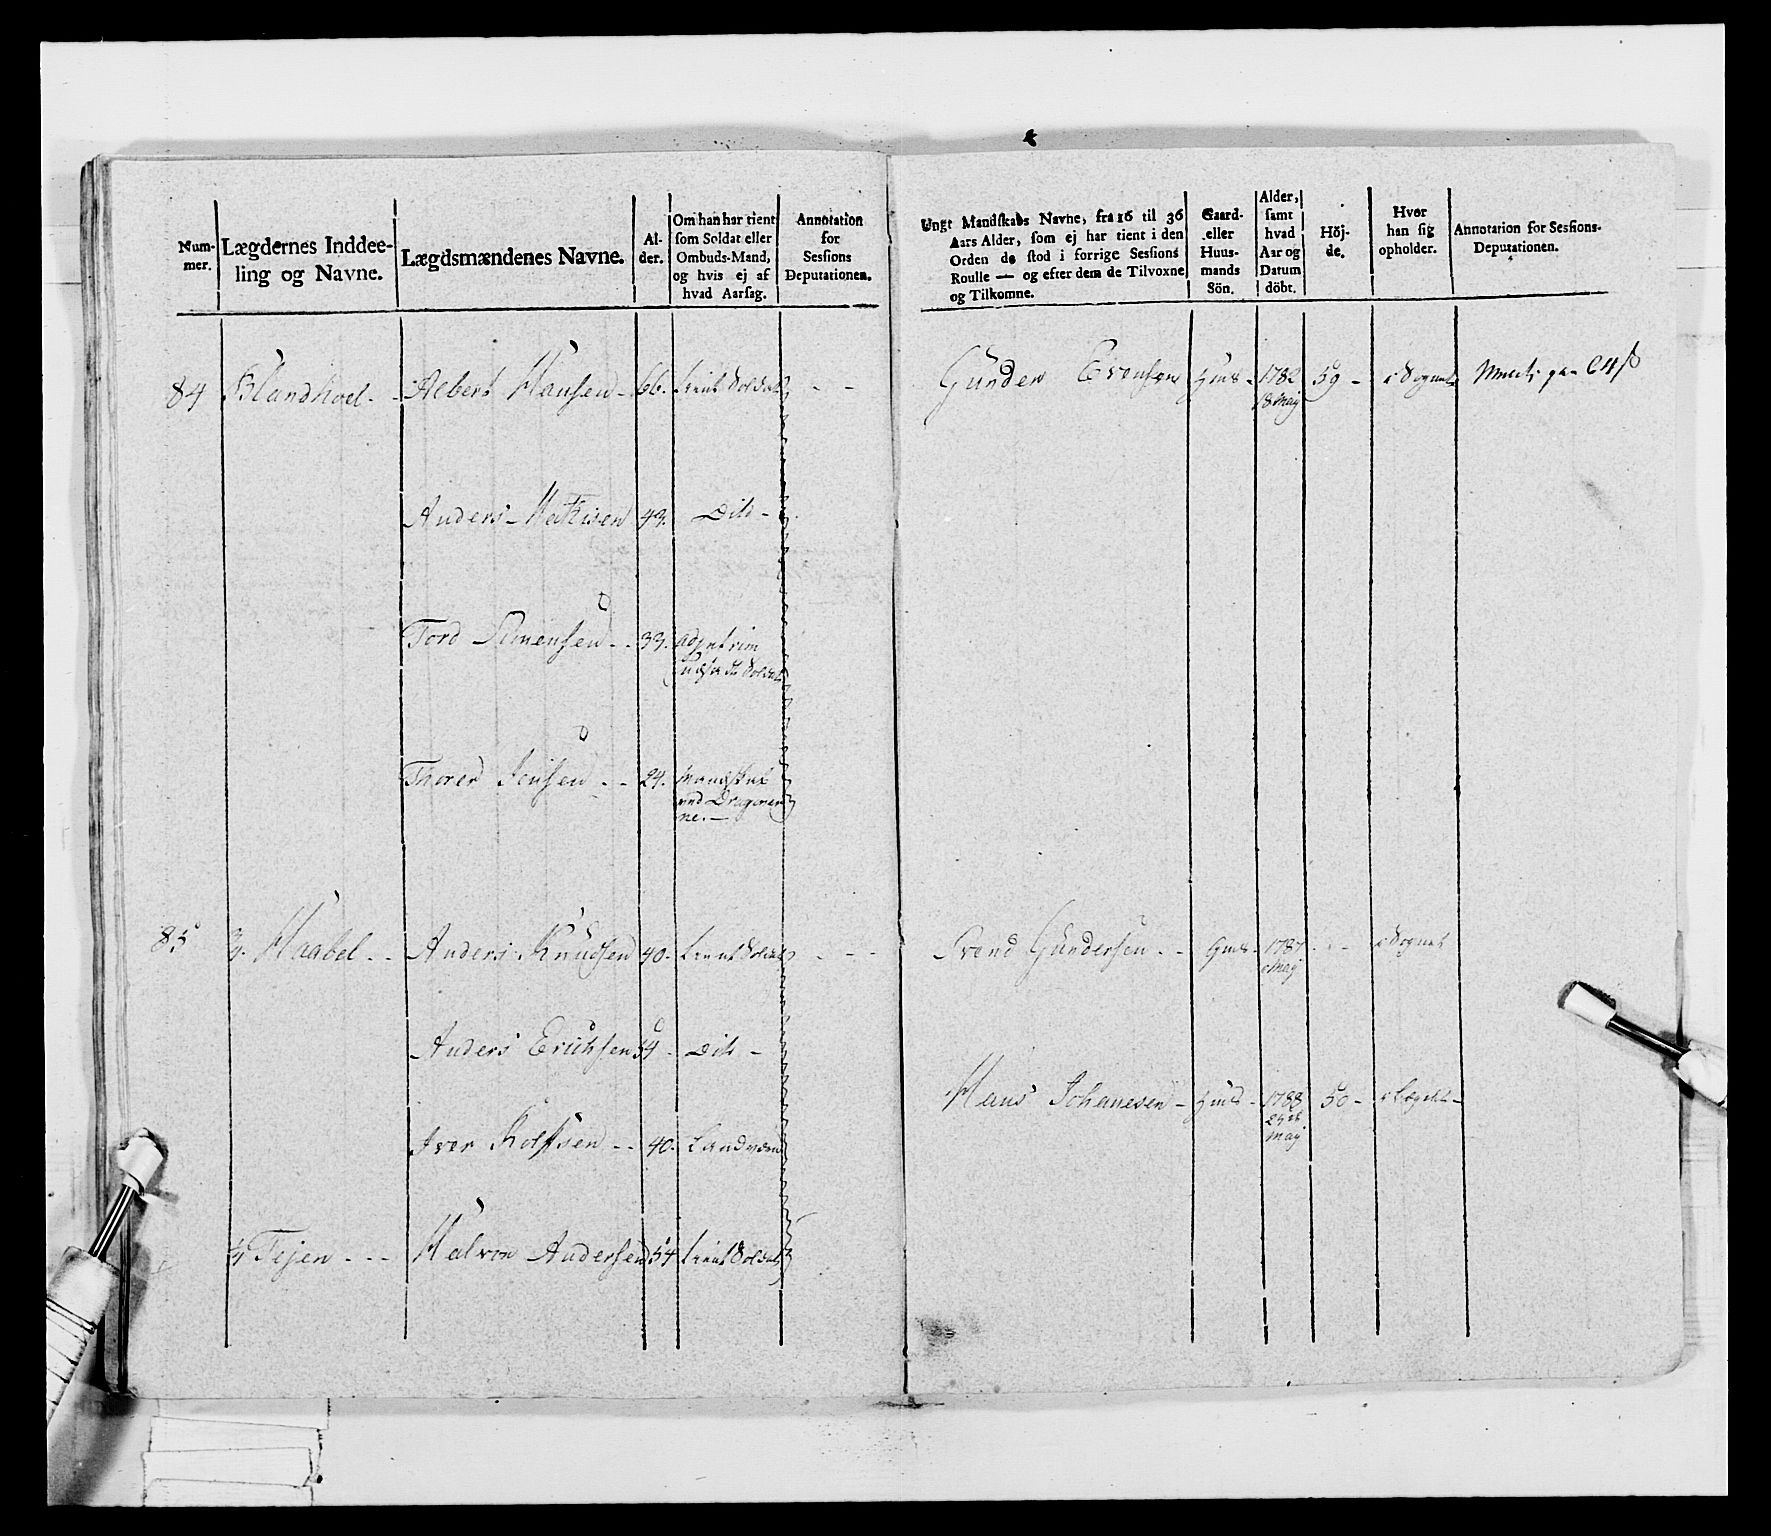 Num-
mer.
Lægdernes Inddee-
ling og Navne.
Lægdsmændenes Navne.
Al-
der.
Om han har tient
som Soldat eller
Ombuds-Mand,
og hvis ej af
hvad Aarsag.
Annotation
for
Sessions
Deputationen.
84 Albert Hansen - 66. tient Soldat - -
Anders Mathisen 43. Dito -
Tord Simensen - - 33.
Thorer Jensen - - 24. Mandskab
ved Dragoner
ne. -
85 3. Haabel - - Anders Knudsen 40. tient Soldat - - -
Anders Erichsen 54 - Dito -
Iver Rolfsen - - 40. Landværn
4 Tejen - - - Halvor Andersen 54 tient Soldat
Ungt Mandskabs Navne, fra 16 til 36
Aars Alder, som ej har tient i den
Orden de stod i forrige Sessions
Roulle — og efter dem de Tilvoxne
og Tilkomne.
Gaard-
eller
Huus-
mands
Sön.
Alder,
samt
hvad
Aar og
Datum
döbt.
Höj-
de.
Hvor
han sig
opholder.
Annotation for Sessions-
Deputationen.
Gunder Evensen Huus - 1782 59 - i Sognet
18 May
Svend Gundersen - - 1787 - - - i Sognet
May
Hans Johanesen - Huus - 1788 50 - i Lægdet -
25de
May